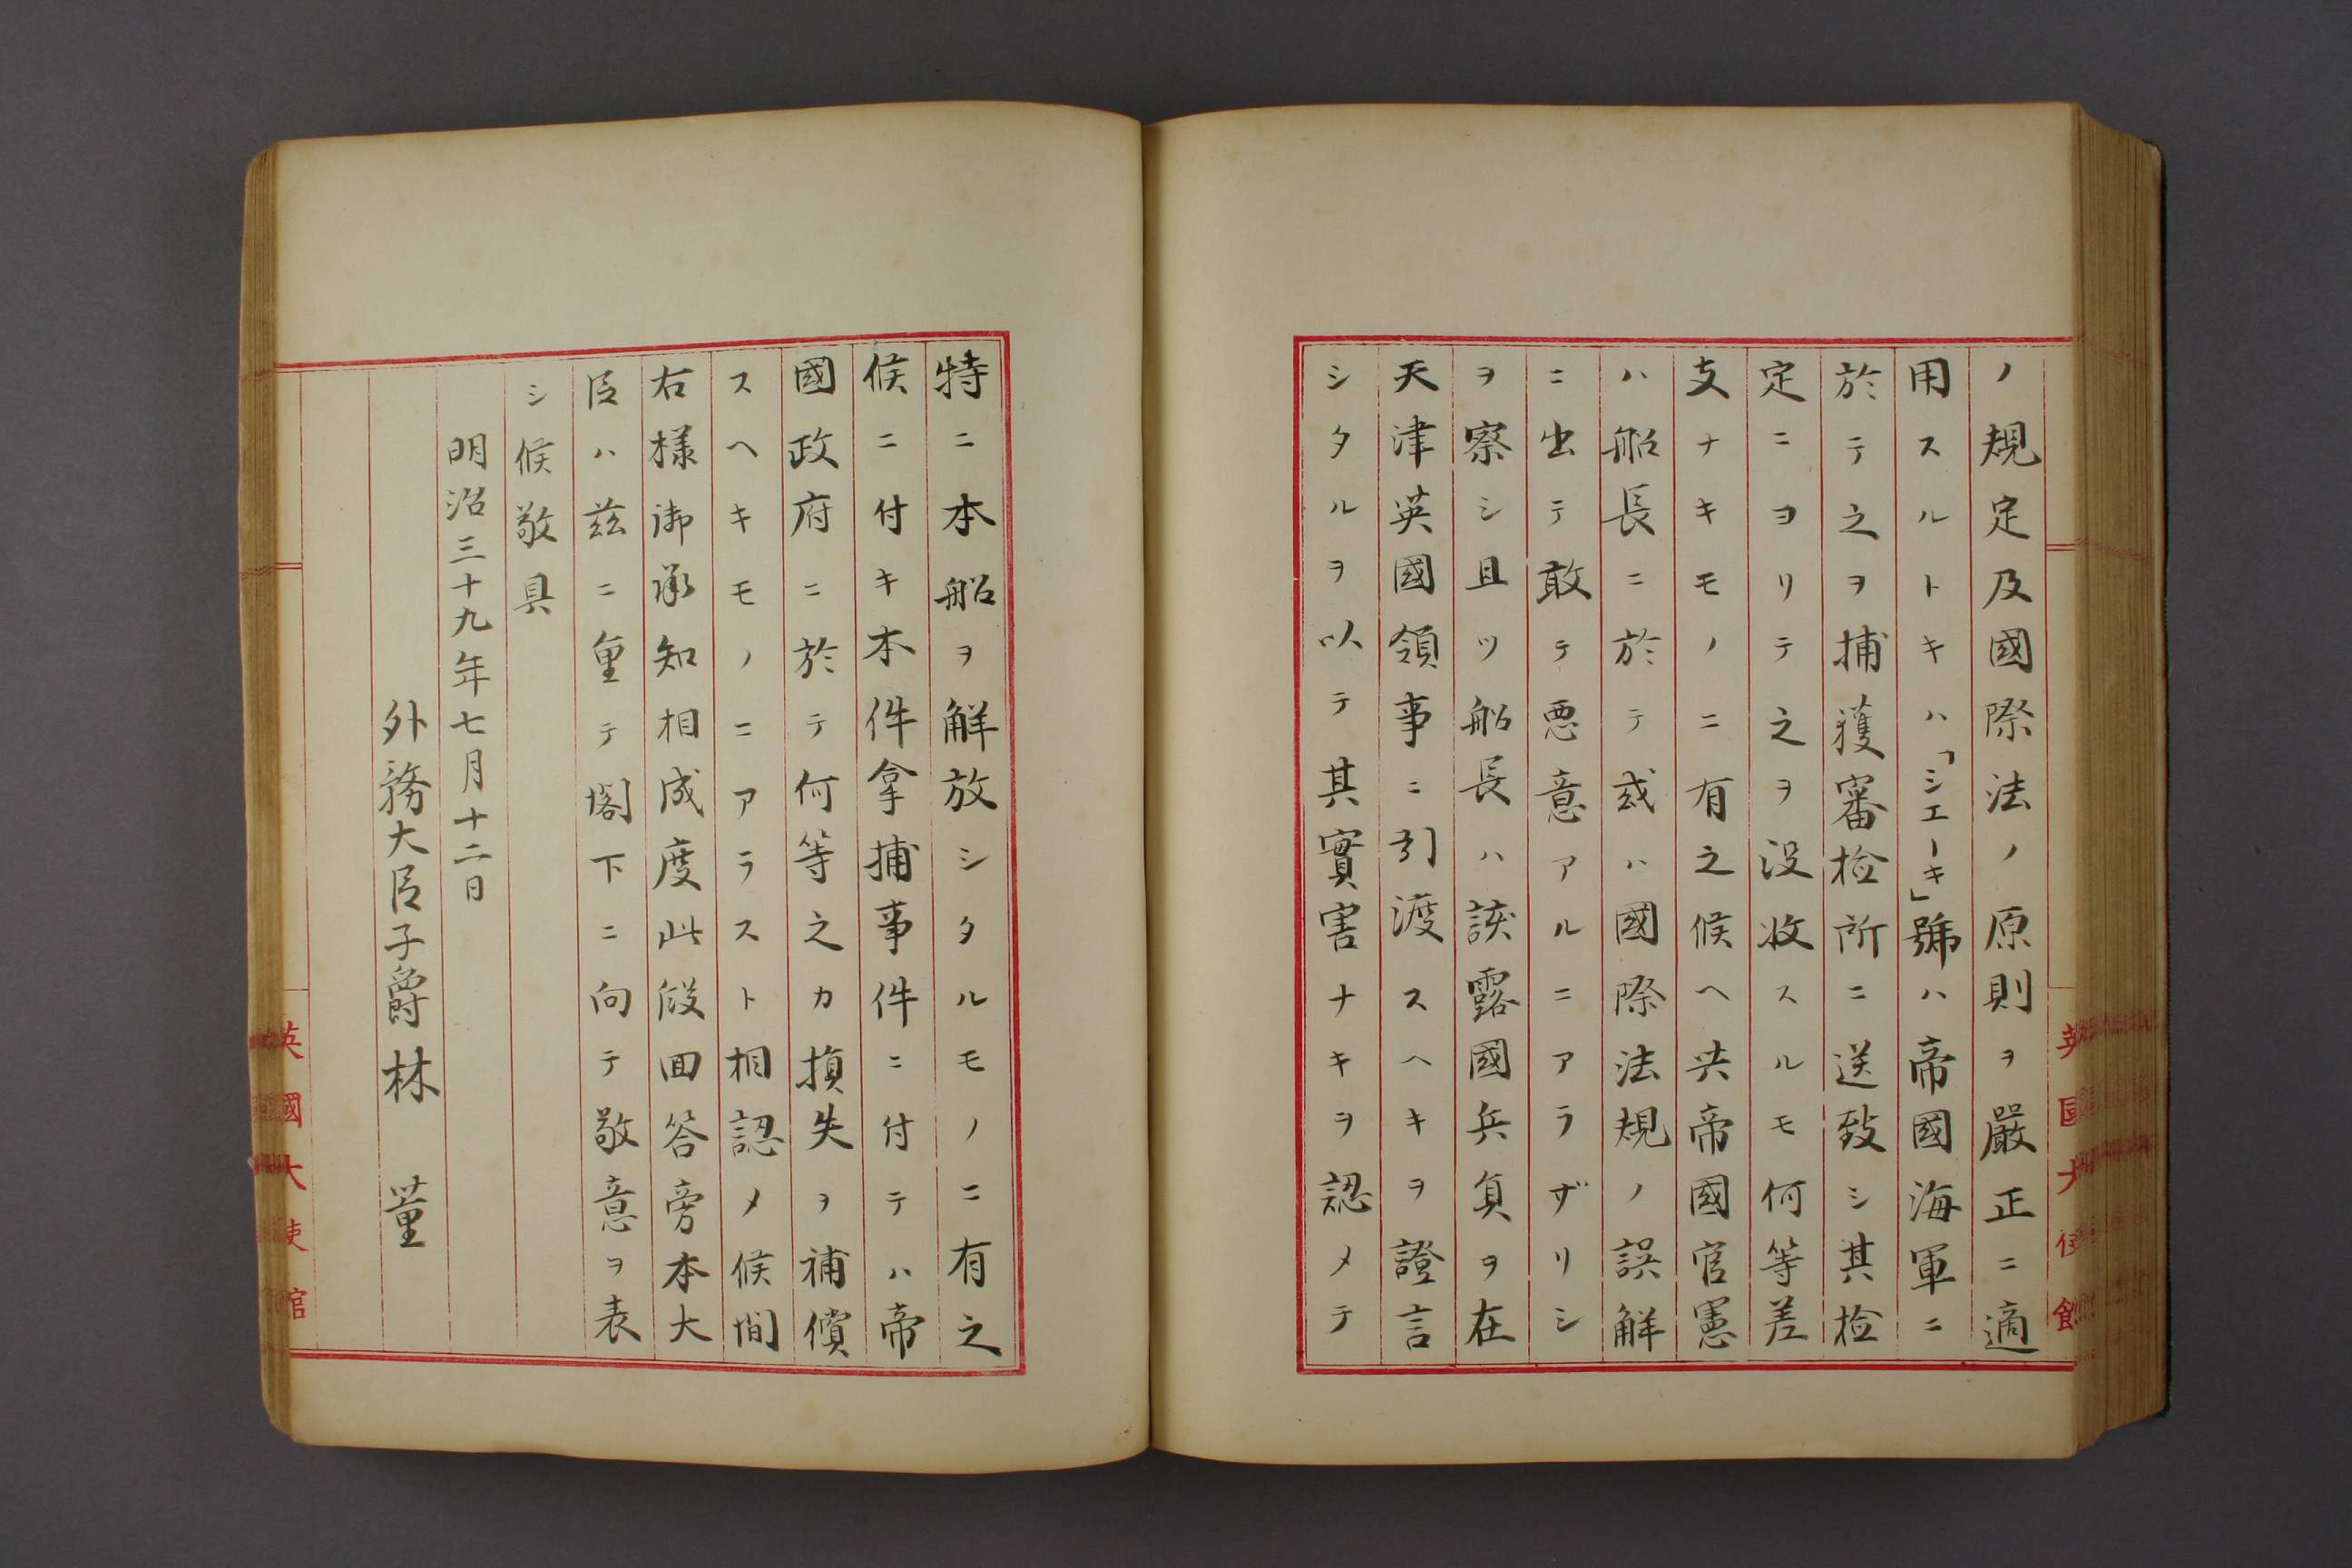 ノ規定及國際法ノ原則ヲ嚴正ニ適
用スルトキハ「シエーキ」號ハ帝國海軍ニ
於テ之ヲ捕獲審檢所ニ送致シ其檢
定ニヨリテ之ヲ沒收スルモ何等差
支ナキモノニ有之候ヘ共帝國官憲
ハ船長ニ於テ或ハ國際法規ノ誤解
ニ出テ敢テ悪意アルニアラザリシ
ヲ察シ且ツ船長ハ該露國兵員ヲ在
天津英國領事ニ引渡スヘキヲ證言
シタルヲ以テ其實害ナキヲ認メテ
特ニ本船ヲ解放シタルモノニ有之
候ニ付キ本件拿捕事件ニ付テハ帝
國政府ニ於テ何等之カ損失ヲ補償
スヘキモノニアラスト相認メ候間
右様御承知相成度此段回答旁本大
臣ハ茲ニ重テ閣下ニ向テ敬意ヲ表
シ候敬具
明治三十九年七月十二日
外務大臣子爵林 董
英國大使館